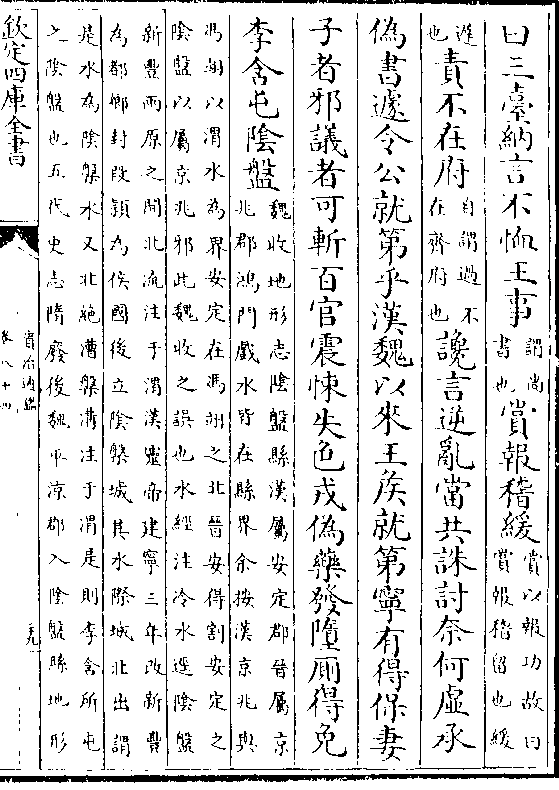 曰三臺納言不恤王事謂尚書也賞報稽緩賞以報功故曰賞報稽留也緩
遲也責不在府自謂過不在齊府也讒言逆亂當共誅討奈何虛承
偽書遽令公就第乎漢魏以來王侯就第寧有得保妻
子者邪議者可斬百官震悚失色戎偽藥發墮廁得免
李含屯陰盤魏收地形志陰盤縣漢屬安定郡晉屬京
兆郡鴻門戲水皆在縣界余按漢京兆與
馮翊以渭水為界安定在馮翊之北晉安得割安定之
陰盤以屬京兆邪此魏收之誤也水經注冷水逕陰盤
新豐兩原之間北流注于渭漢靈帝建寧三年改新豐
為都鄉封段熲為侯國後立陰槃城其水際城北出謂
是水為陰槃水又北絶漕槃溝注于渭是則李含所屯
之陰盤也五代史志隋廢後魏平涼郡入陰盤縣地形
欽定四庫全書
資治通鑑
卷八十四
十九